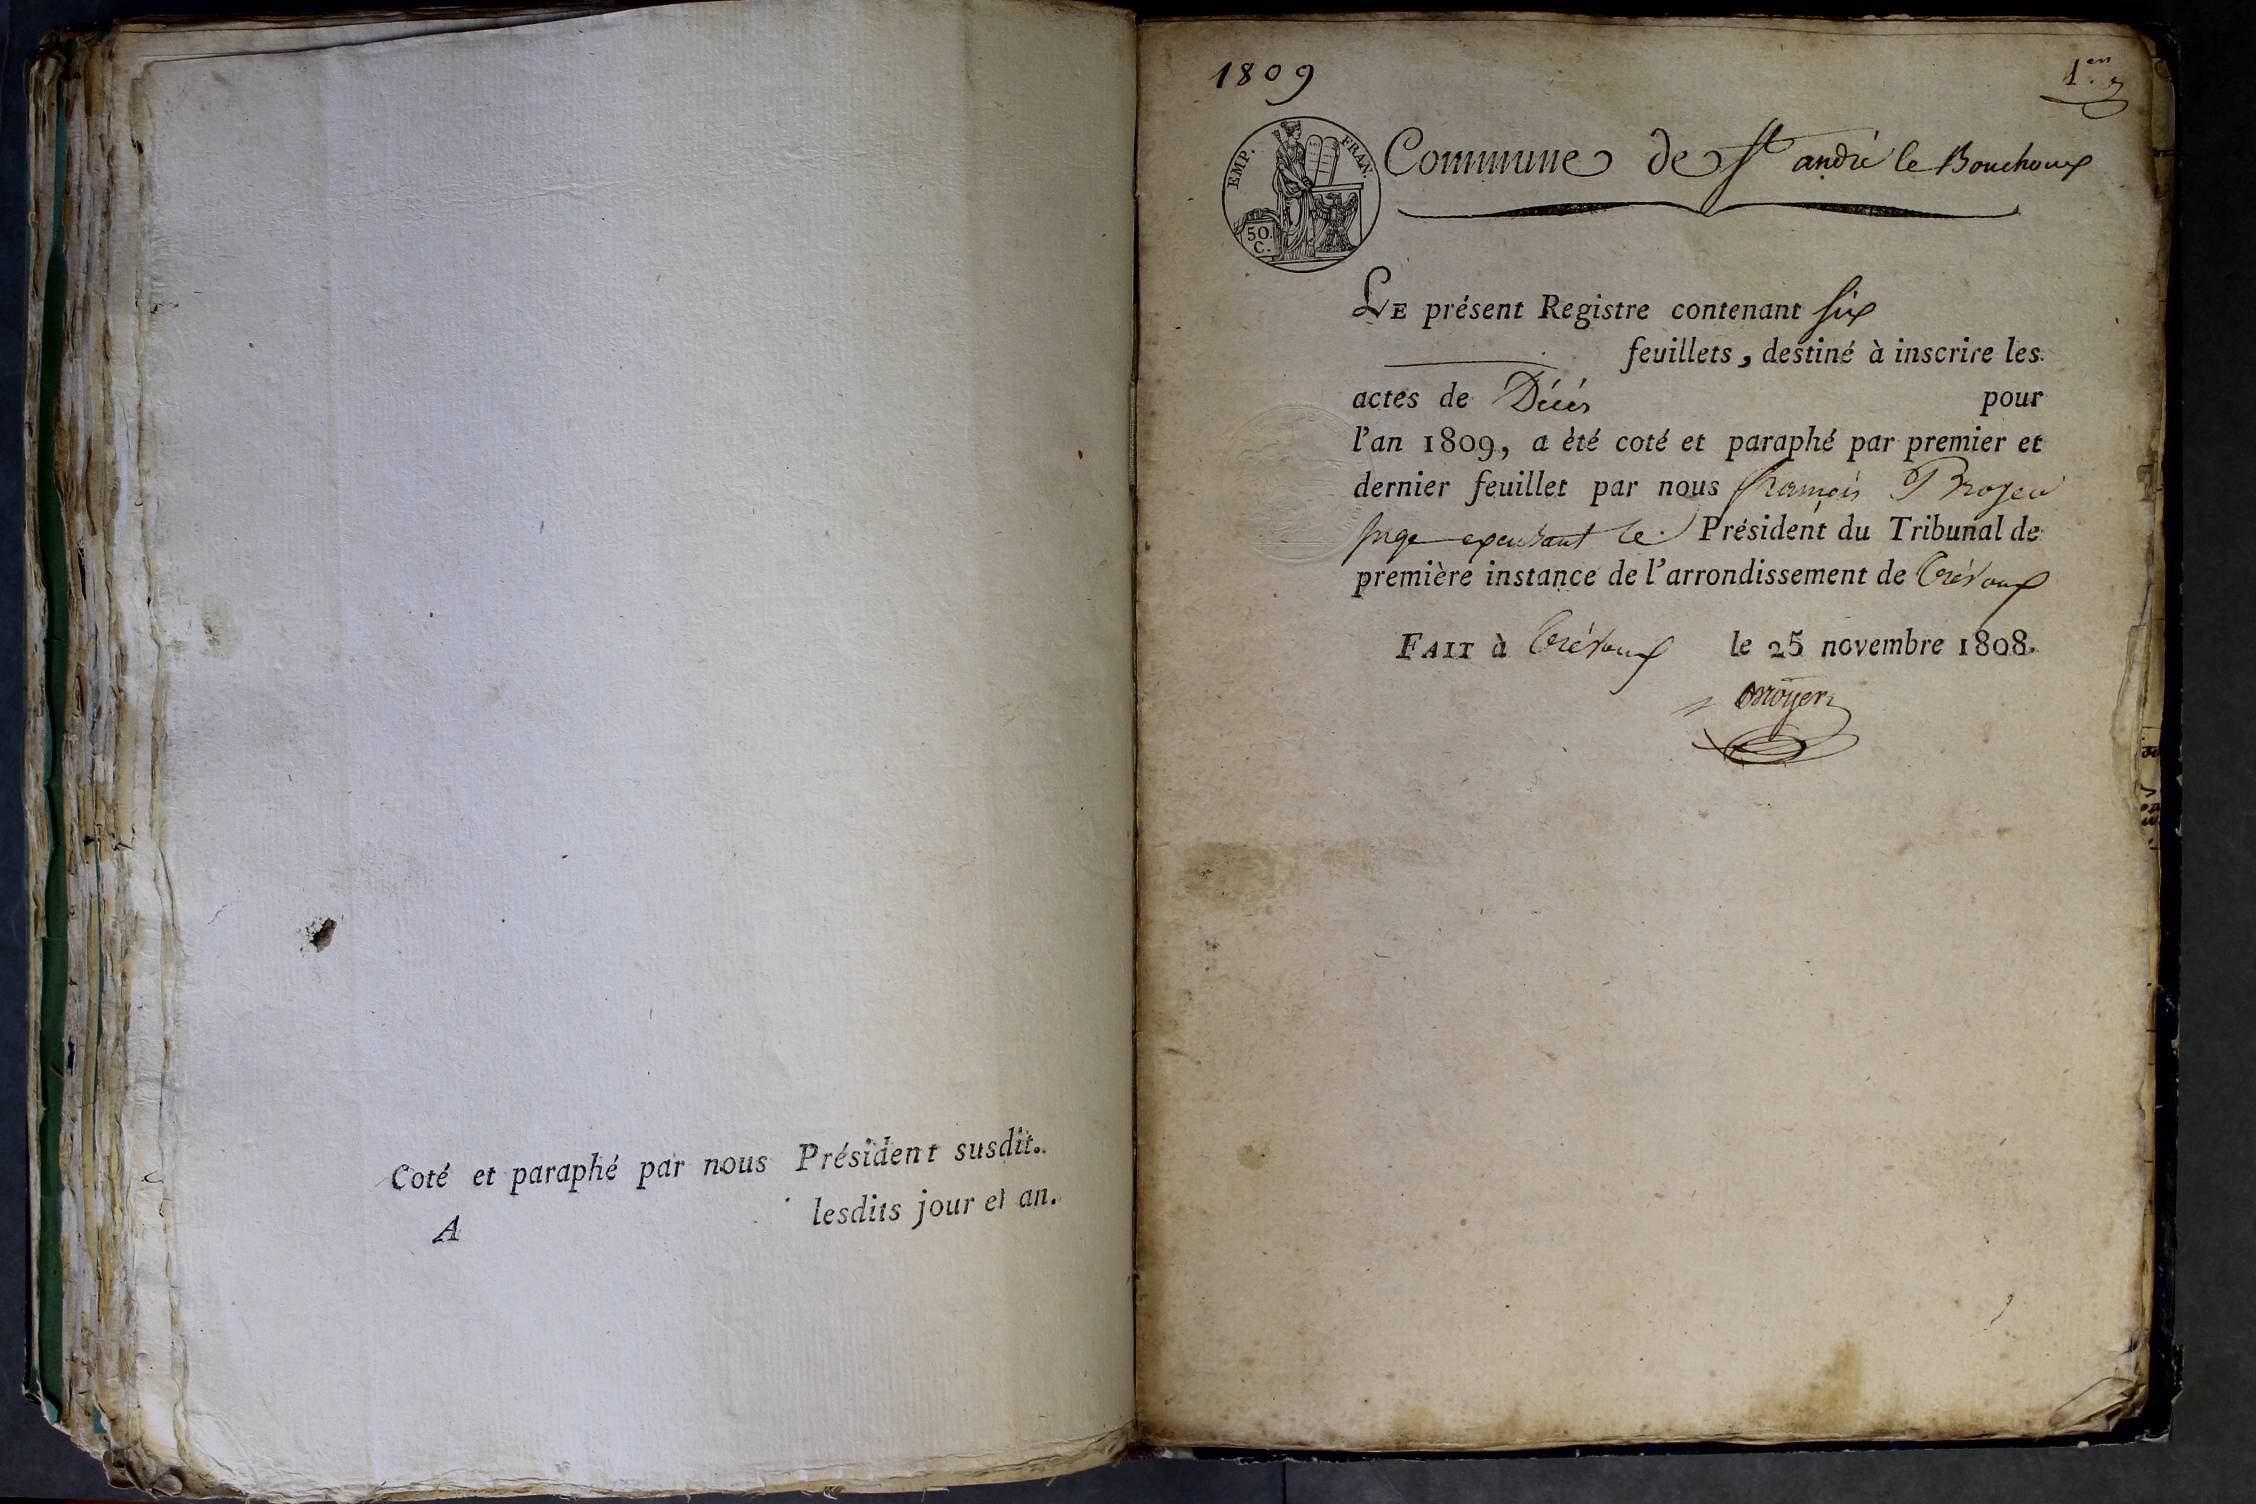 Coté et paraphé par nous Président susdit.
A lesdits jour et an.
1809
1er
EMP. FRAN.
50. C.
Commune de St andré le Bouchoux
LE présent Registre contenant six
feuillets, destiné à inscrire les
actes de Décés pour
l'an 1809, a èté coté et paraphé par premier et
dernier feuillet par nous françois
juge le Président du Tribunal de
première instance de l'arrondissement de Trévoux
FAIT à Trévoux le 25 novembre 1808.